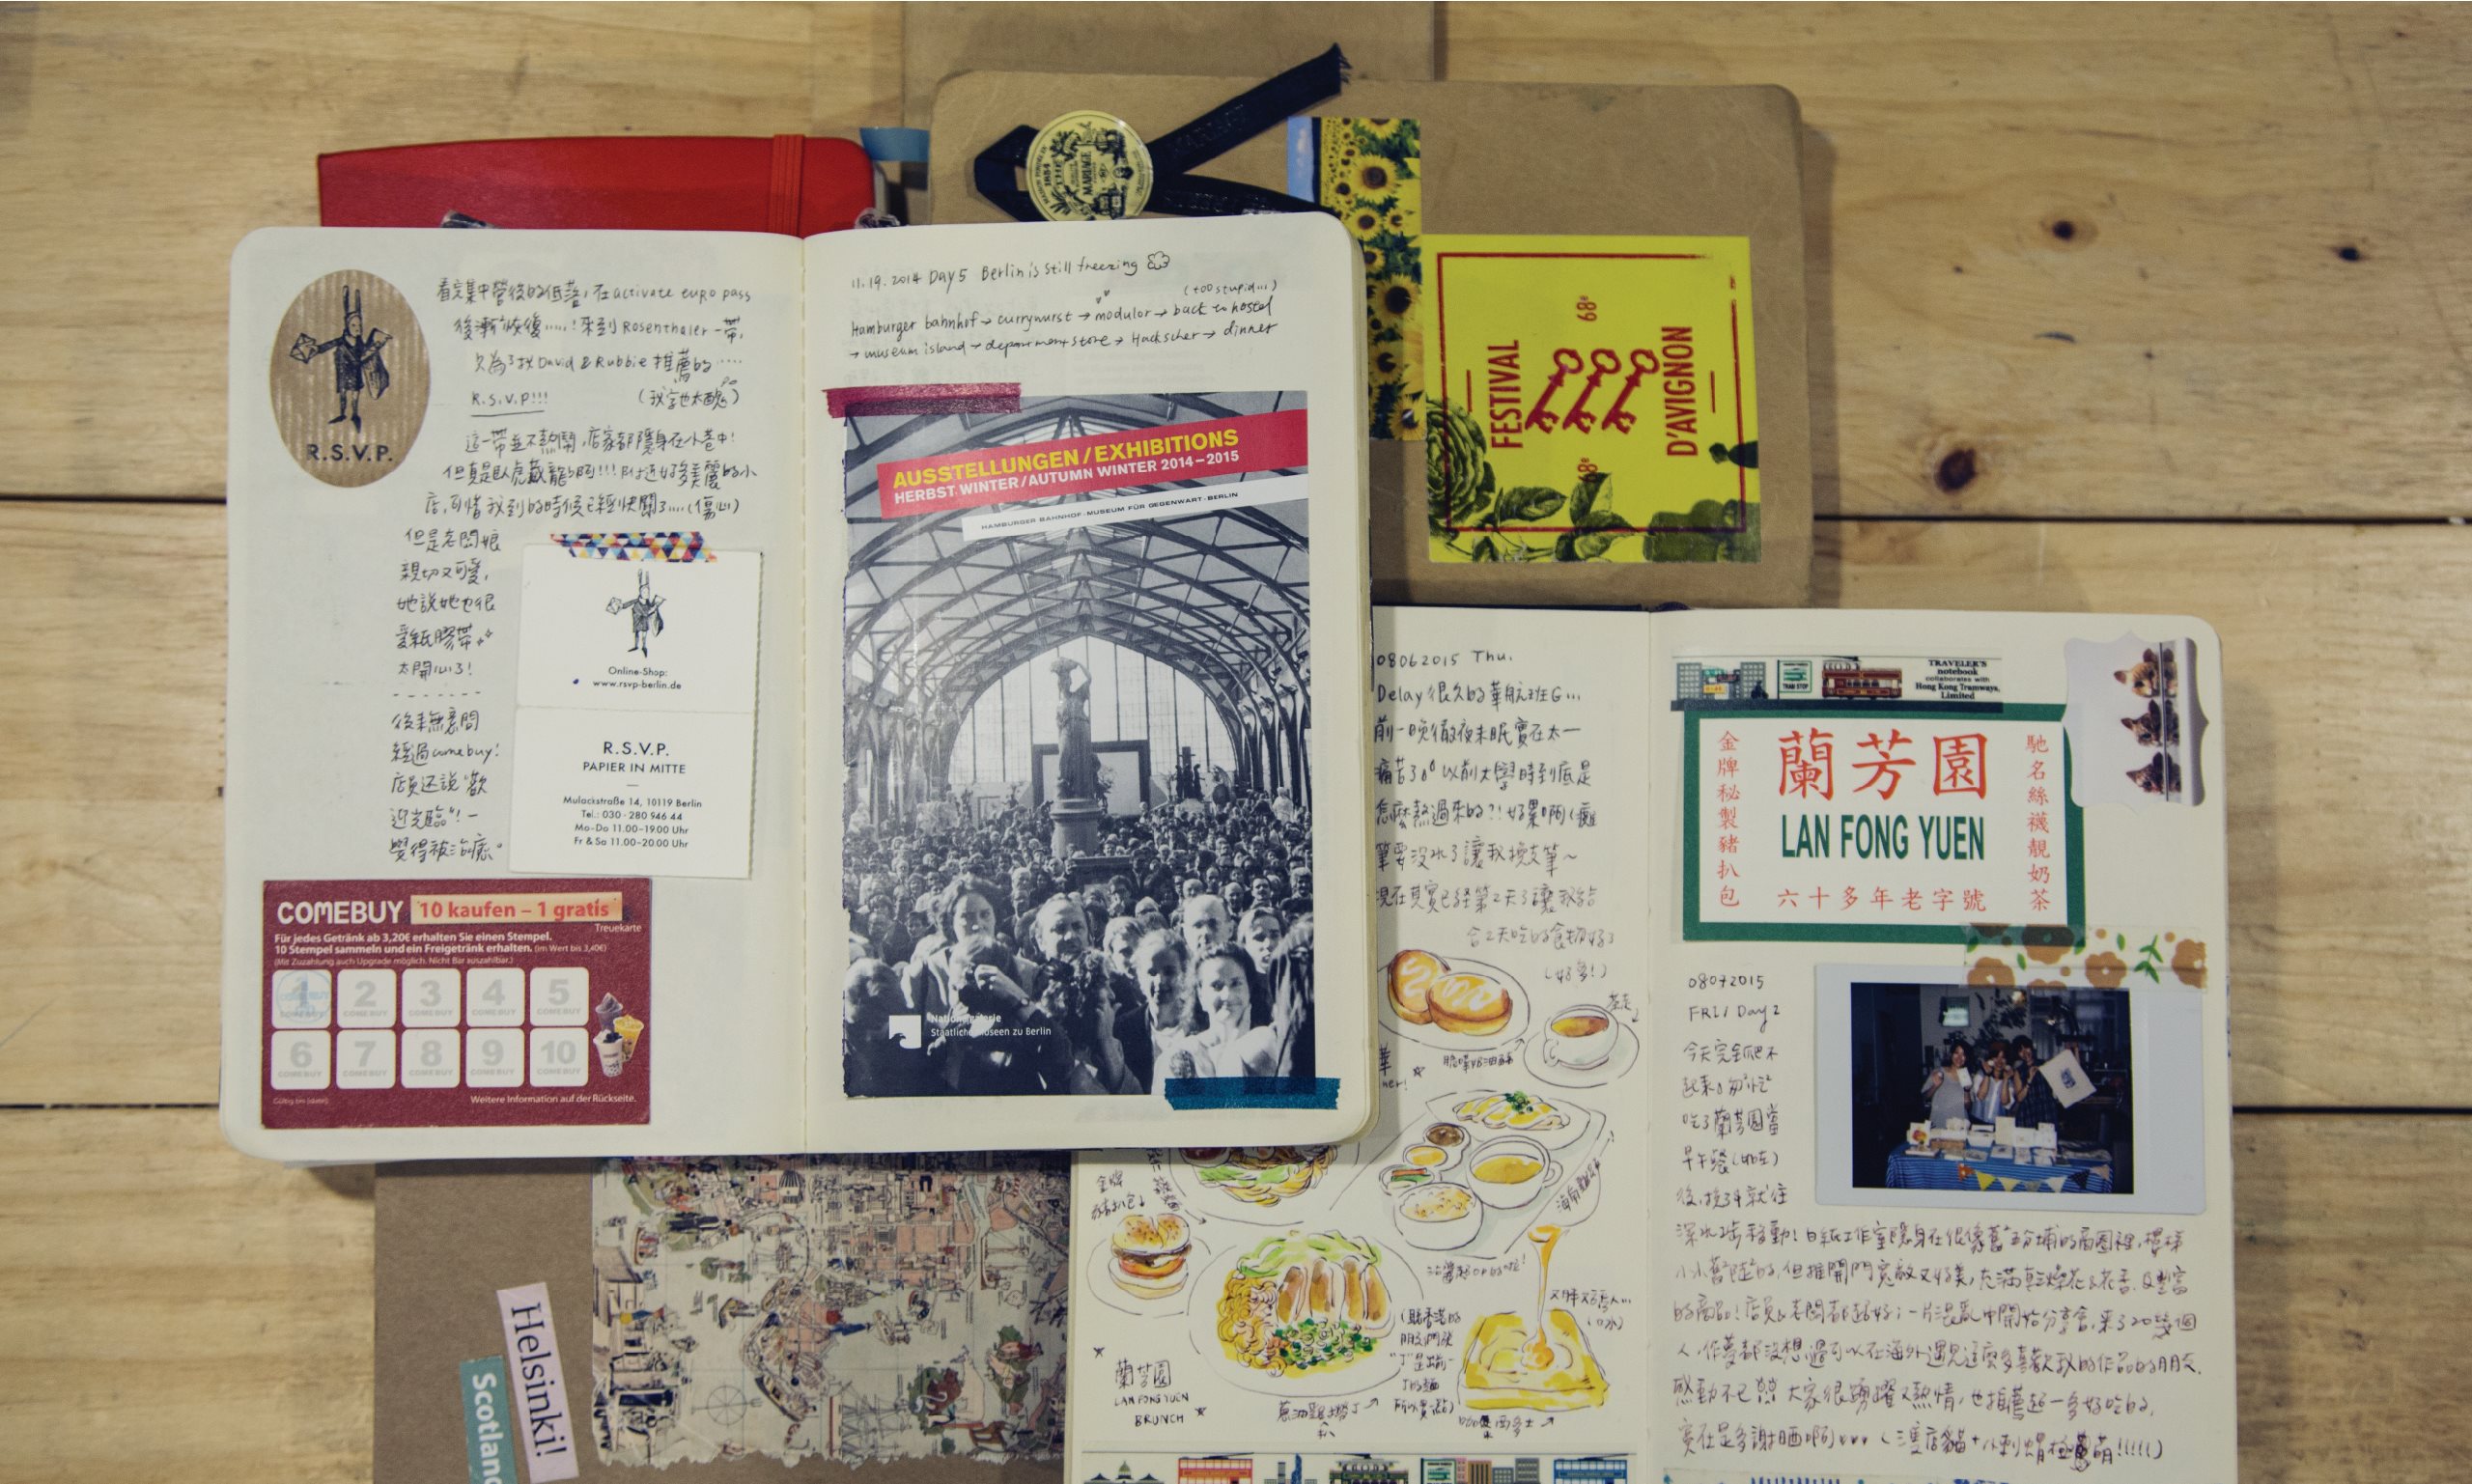 看完集中營後的低落，在 activate euro pass
後漸恢復.....！來到 Rosenthaler 一帶，
只為了找 David & Rubbie 推薦的....
R.S.V.P!!! （我字也太醜）
這一帶並不熱鬧，店家都隱身在小巷中！
但真是臥虎藏龍的啊!!! 附近好多美麗的小
店，可惜我到的時候已經快關了....（傷心）
但是老闆娘
親切又可愛，
她說她也很
愛紙膠帶
太開心了！
後來無意間
經過comebuy！
店員還說"歡
迎光臨"！一
覺得被治癒。
R.S.V.P.
Online-Shop:
www.rsvp-berlin.de
R.S.V.P.
PAPIER IN MITTE
Mulackstraße 14, 10119 Berlin
Tel.: 030 - 280 946 44
Mo-Do 11.00-19.00 Uhr
Fr & Sa 11.00-20.00 Uhr
COMEBUY 10 kaufen – 1 gratis
Treuekarte
Für jedes Getränk ab 3,20€ erhalten Sie einen Stempel.
10 Stempel sammeln und ein Freigetränk erhalten. (im Wert bis 3,40€)
(Mit Zuzahlung auch Upgrade möglich. Nicht Bar auszahlbar.)
1 2 3 4 5
COMEBUY COMEBUY COMEBUY COMEBUY COMEBUY
6 7 8 9 10
COMEBUY COMEBUY COMEBUY COMEBUY COMEBUY
Gültig bis (datei):
Weitere Information auf der Rückseite.
11.19.2014 Day 5 Berlin is still freezing
(too stupid...)
Hamburger bahnhof → currywurst → modulor → back to hostel
→ museum island → department store → Hackscher → dinner
AUSSTELLUNGEN / EXHIBITIONS
HERBST WINTER / AUTUMN WINTER 2014–2015
HAMBURGER BAHNHOF - MUSEUM FÜR GEGENWART - BERLIN
Nationalgalerie
Staatliche Museen zu Berlin
1854
MARIAGE
FESTIVAL
D'AVIGNON
68e 68e
Helsinki!
Scotland
08062015 Thu.
Delay很久的華航班G...
前一晚徹夜未眠實在太一
痛苦了。以前大學時到底是
怎麼熬過來的?!好累啊（
筆要沒水了讓我換支筆～
現在其實已經第2天了讓我結
合2天吃的食物好了
（好多！）
茶走
金牌
豬扒包
海南雞
又胖又高人...
（口水）
（聽香港的
蘭芳園
LAN FONG YUEN
BRUNCH
蔥油雞撈丁
西多士
TRAVELER'S
notebook
collaborates with
Hong Kong Tramways,
Limited
TRAM STOP
金牌秘製豬扒包
蘭芳園
LAN FONG YUEN
六十多年老字號
馳名絲襪靚奶茶
08072015
FRI / Day 2
今天完全爬不
起來。匆忙
吃了蘭芳園當
早午餐（如左）
後，
深水埗移動！白紙工作室隱身在很像舊五分埔的商圈裡，樓梯
小小舊舊的，但推開門寬敞又好美，充滿乾燥花&花香，及豐富
的商品！店員&老闆都超好；一片混亂中開始分享會，來了20幾個
人，作夢都沒想過可以在海外遇見這麼多喜歡我的作品的朋友，
感動不已 大家很踴躍又熱情，也推薦超一多好吃的，
實在是多謝晒啊♥♥♥（店貓+小刺蝟 萌!!!!!）